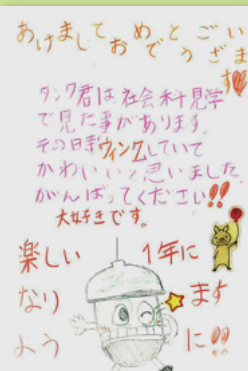 あけましておめでとうございます
タンク君は社会科見学
で見た事があります。
その日時ウィンクしていて
かわいいと思いました。
がんばってください!!
大好きです。
楽しい 1年に
なり ます
よう に!!